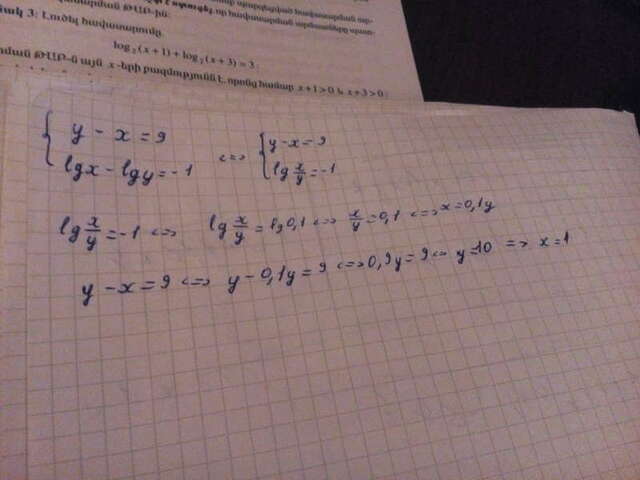 հավասարման ԹԱԲ-ին:
3: Լուծել հավասարումը.
log₂(x+1)+log₂(x+3)=3:
ԹԱԲ-ն այն x-երի բազմությունն է, որոնց համար x+1>0 և x+3>0:
{ y - x = 9
lgx - lgy = -1 <=> { y-x=9
lg x/y = -1
lg x/y = -1 <=> lg x/y = lg 0,1 <=> x/y = 0,1 <=> x=0,1y
y - x = 9 <=> y - 0,1y = 9 <=> 0,9y = 9 <=> y=10 => x=1